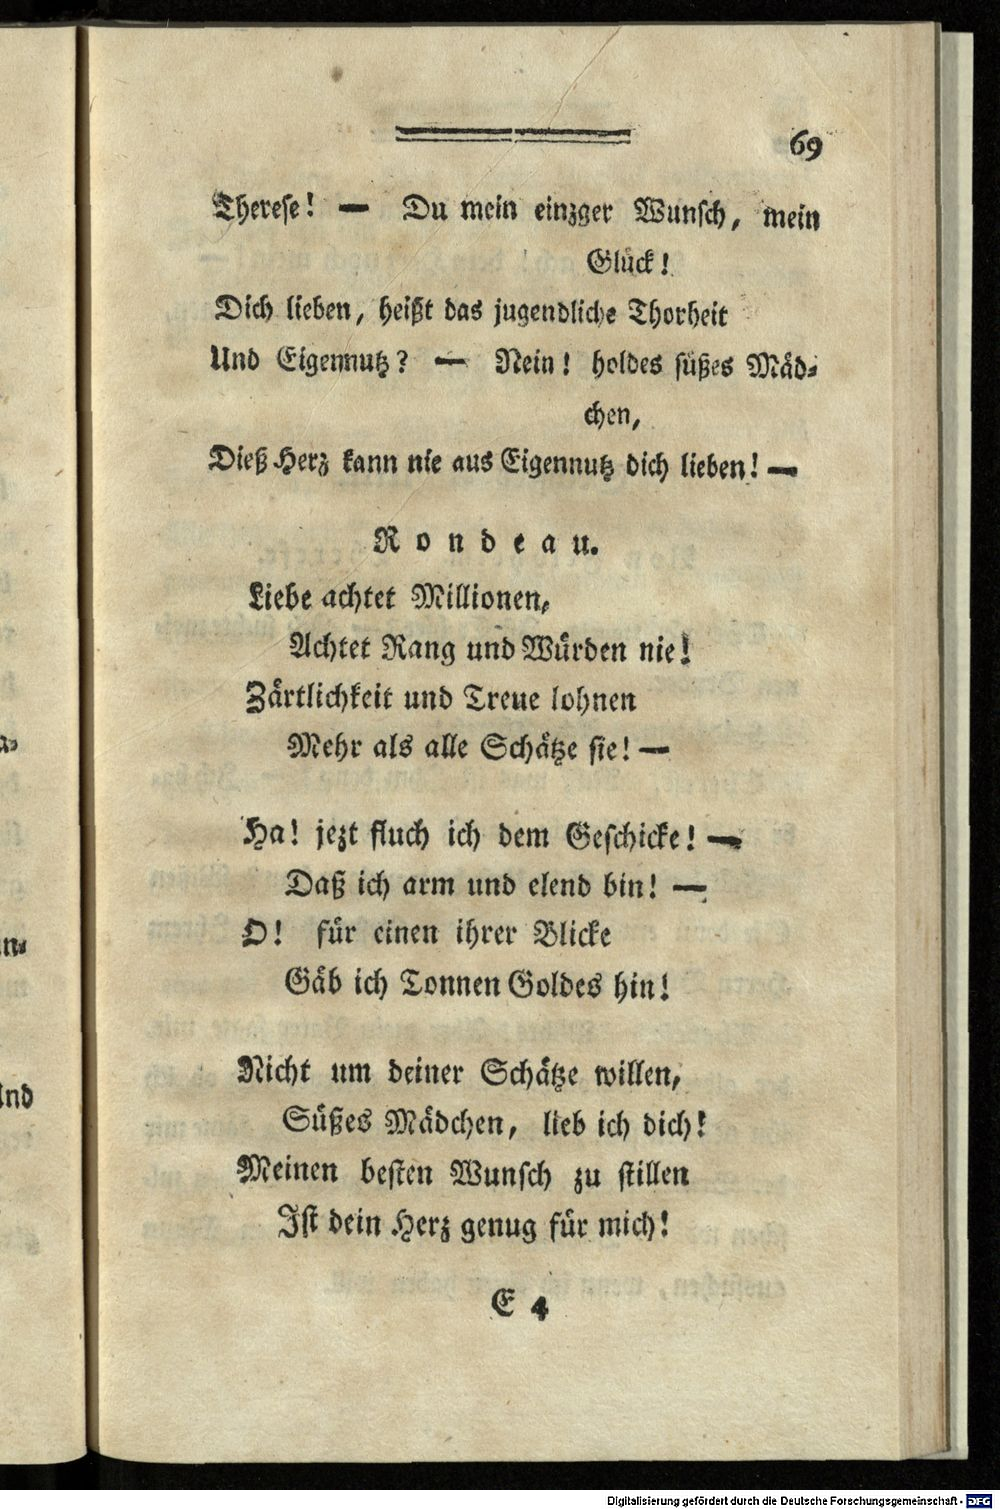 69
Therese! — Du mein einzger Wunsch, mein
Glück!
Dich lieben, heißt das jugendliche Thorheit
Und Eigennutz? — Nein! holdes süßes Mäd-
chen,
Dieß Herz kann nie aus Eigennutz dich lieben! —
Rondeau.
Liebe achtet Millionen,
Achtet Rang und Würden nie!
Zärtlichkeit und Treue lohnen
Mehr als alle Schätze sie! —
Ha! jezt fluch ich dem Geschicke! —
Daß ich arm und elend bin! —
O! für einen ihrer Blicke
Gäb ich Tonnen Goldes hin!
Nicht um deiner Schätze willen,
Süßes Mädchen, lieb ich dich!
Meinen besten Wunsch zu stillen
Ist dein Herz genug für mich!
E 4
Digitalisierung gefördert durch die Deutsche Forschungsgemeinschaft - DFG